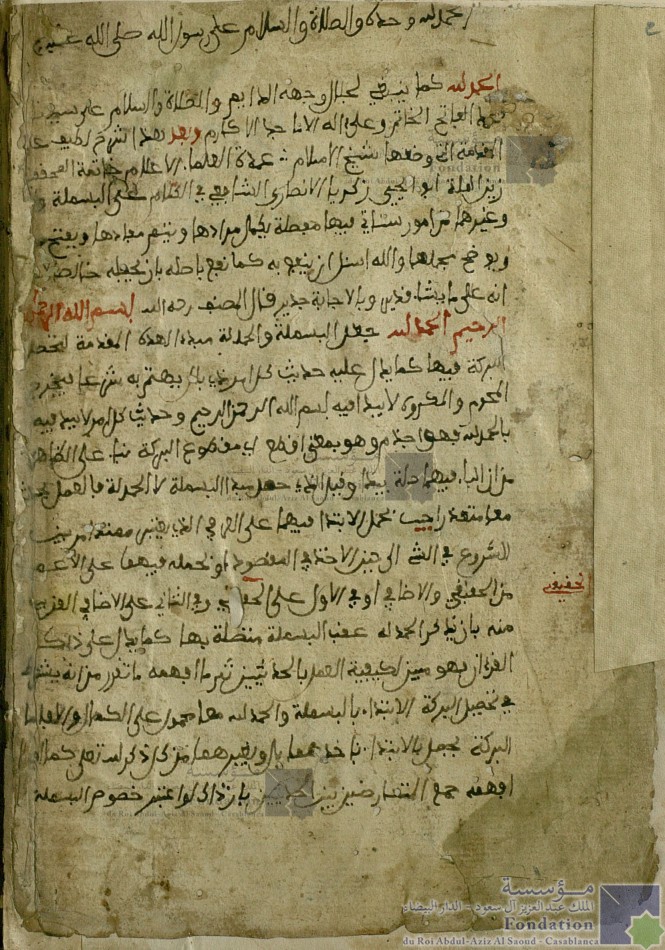 الحمد لله وحده والصلاة والسلام على رسول الله صلى الله عليه
الحمد لله كما ينبغي لجلال وجهه الدايم والصلاة والسلام على سيدنا
محمد الفاتح الخاتم وعلى اله الاماجد الاكارم وبعد فهذا شرح لطيف على
المقدمة التي وضعها شيخ الاسلام عمدة العلماء الاعلام خاتمة المحققين
زين الملة ابو يحيى زكريا الانصاري الشافعي في الكلام على البسملة و
وغيرهما من امور ستاتي فيها مفصلة يكمل مرادها ويتمم مفادها ويفتح
ويوضح مجملها والله اسئل ان ينفع به كما نفع باصله بان يجعله خالصا
انه على ما يشاء قدير وبالاجابة جدير قال المصنف رحمه الله بسم الله الرحمن
الرحيم الحمد لله جعل البسملة والحمدلة مبدا لهذه المقدمة لتحصل
البركة فيها كما يدل عليه حديث كل امر ذي بال يهتم به شرعا فيخرج
المحرم والمكروه لا يبدا فيه ببسم الله الرحمن الرحيم وحديث كل امر لا يبدا فيه
بالحمد لله فهو اجذم وهو بمعنى اقطع اي مقطوع البركة بناء على الظاهر
من ان الباء فيهما صلة يبدا وقيل الذي جعل مبدا البسملة لا الحمدلة فالعمل
معا متعذر اجيب بحمل الابتدا فيهما على العرفي الذي يعتبر ممتدا من حين
الشروع في الشي الى حين الاخذ في المقصود او بحمله فيهما على الاعم
الحقيقي
من الحقيقي والاضافي او في الاول على الحقيقي وفي الثاني على الاضافي القريب
منه بان يذكر الحمد لله عقب البسملة متصلة بها كما يدل على ذلك
القران فهو مبين لكيفية العمل بالحديثين ثم ما افهمه ما تقرر من انه يشترط
في تحصيل البركة الابتداء بالبسملة والحمد لله معا محمول على الكمال والا فاصل
البركة يحصل بالابتداء باحدهما بل وبغيرهما من كل ذكر لله تعلى كما
افهمه جمع المتعارضين بين الحديثين بان ذلك لو اعتبر خصوص البسملة
مؤسسة
الملك عبد العزيز آل سعود - الدار البيضاء
Fondation
du Roi Abdul-Aziz Al Saoud - Casablanca